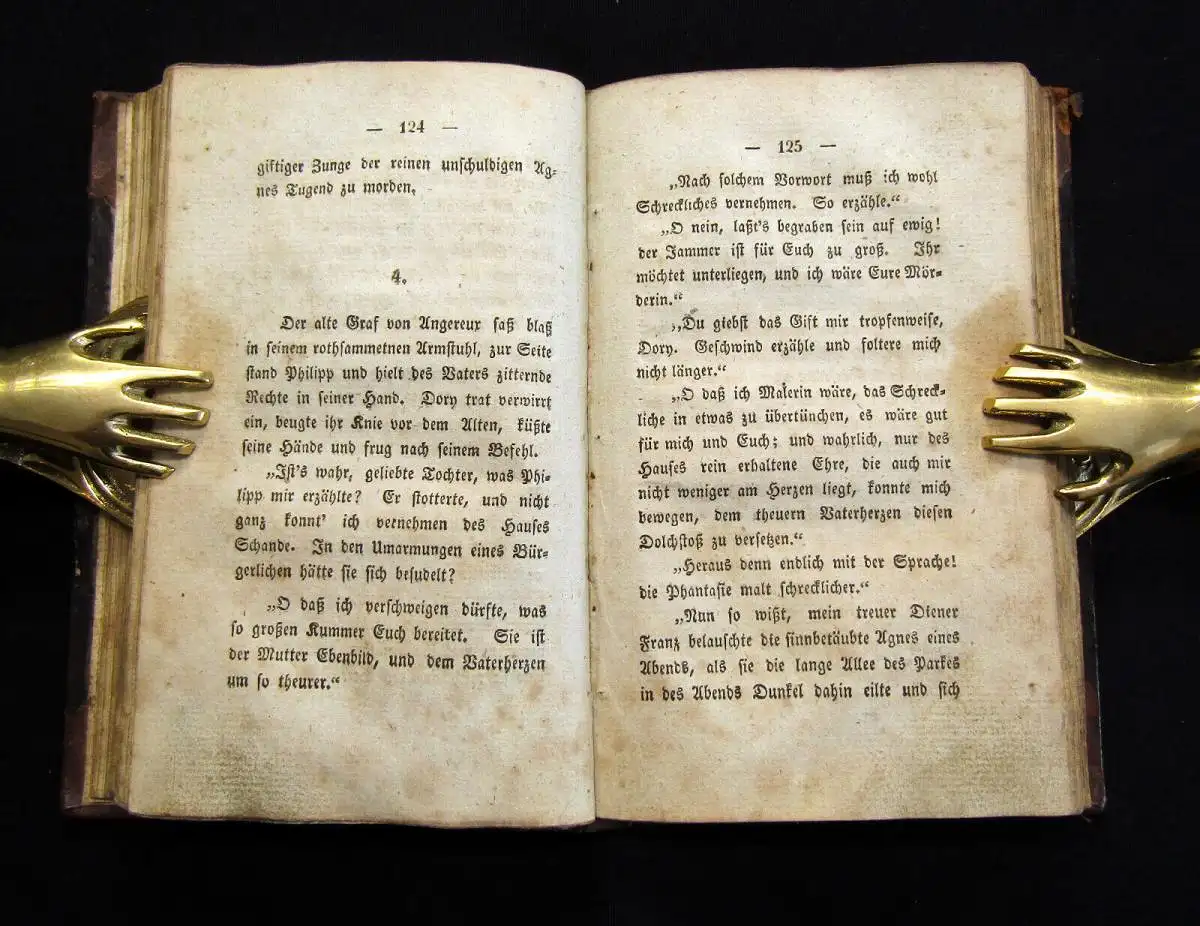 — 124 —
giftiger Zunge der reinen unschuldigen Ag-
nes Tugend zu morden.
4.
Der alte Graf von Angereur saß blaß
in seinem rothsammetnen Armstuhl, zur Seite
stand Philipp und hielt des Vaters zitternde
Rechte in seiner Hand. Dory trat verwirrt
ein, beugte ihr Knie vor dem Alten, küßte
seine Hände und frug nach seinem Befehl.
„Ist's wahr, geliebte Tochter, was Phi-
lipp mir erzählte? Er stotterte, und nicht
ganz konnt' ich vernehmen des Hauses
Schande. In den Umarmungen eines Bür-
gerlichen hätte sie sich besudelt?
„O daß ich verschweigen dürfte, was
so großen Kummer Euch bereitet. Sie ist
der Mutter Ebenbild, und dem Vaterherzen
um so theurer.“
— 125 —
„Nach solchem Vorwort muß ich wohl
Schreckliches vernehmen. So erzähle.“
„O nein, laßt's begraben sein auf ewig!
der Jammer ist für Euch zu groß. Ihr
möchtet unterliegen, und ich wäre Eure Mör-
derin.“
„Du giebst das Gift mir tropfenweise,
Dory. Geschwind erzähle und foltere mich
nicht länger.“
„O daß ich Malerin wäre, das Schreck-
liche in etwas zu übertünchen, es wäre gut
für mich und Euch; und wahrlich, nur des
Hauses rein erhaltene Ehre, die auch mir
nicht weniger am Herzen liegt, konnte mich
bewegen, dem theuern Vaterherzen diesen
Dolchstoß zu versetzen.“
„Heraus denn endlich mit der Sprache!
die Phantasie malt schrecklicher.“
„Nun so wißt, mein treuer Diener
Franz belauschte dte sinnbetäubte Agnes eines
Abends, als sie die lange Allee des Parkes
in des Abends Dunkel dahin eilte und sich